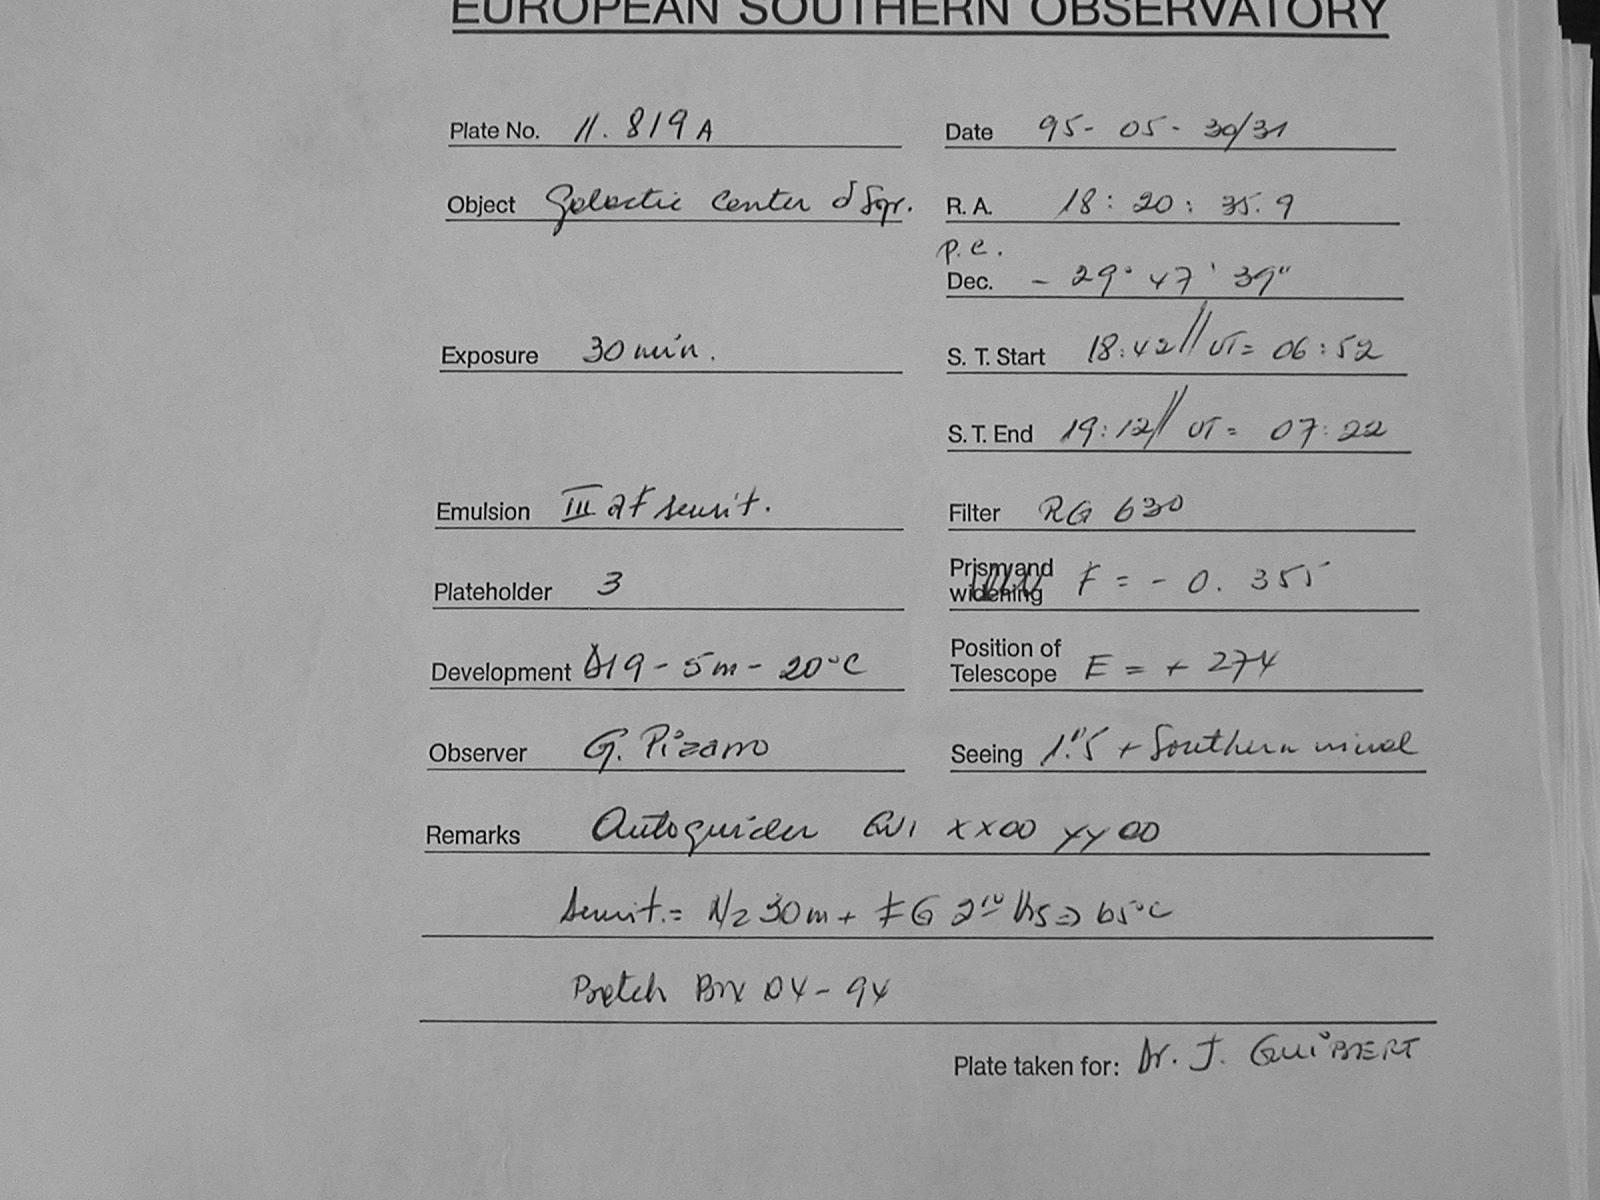 EUROPEAN SOUTHERN OBSERVATORY
Plate No. 11.819A Date 95-05-30/31
Object Galactic Center δ Sgr. R. A. 18 : 20 : 35.9
p.e.
Dec. - 29° 47' 39"
Exposure 30 min. S. T. Start 18:42// UT= 06:52
S. T. End 19:12// UT= 07:22
Emulsion III aF sensit. Filter RG 630
Plateholder 3 Prism and widening F = - 0.355
Development D19 - 5m - 20°C Position of Telescope E = + 274
Observer G. Pizarro Seeing 1."5 + Southern wind
Remarks Autoguider GV1 XX00 YY00
Sensit.= N2 30m + FG 2 hs => 65°C
Batch 04-94
Plate taken for: Dr. J. GUIBERT